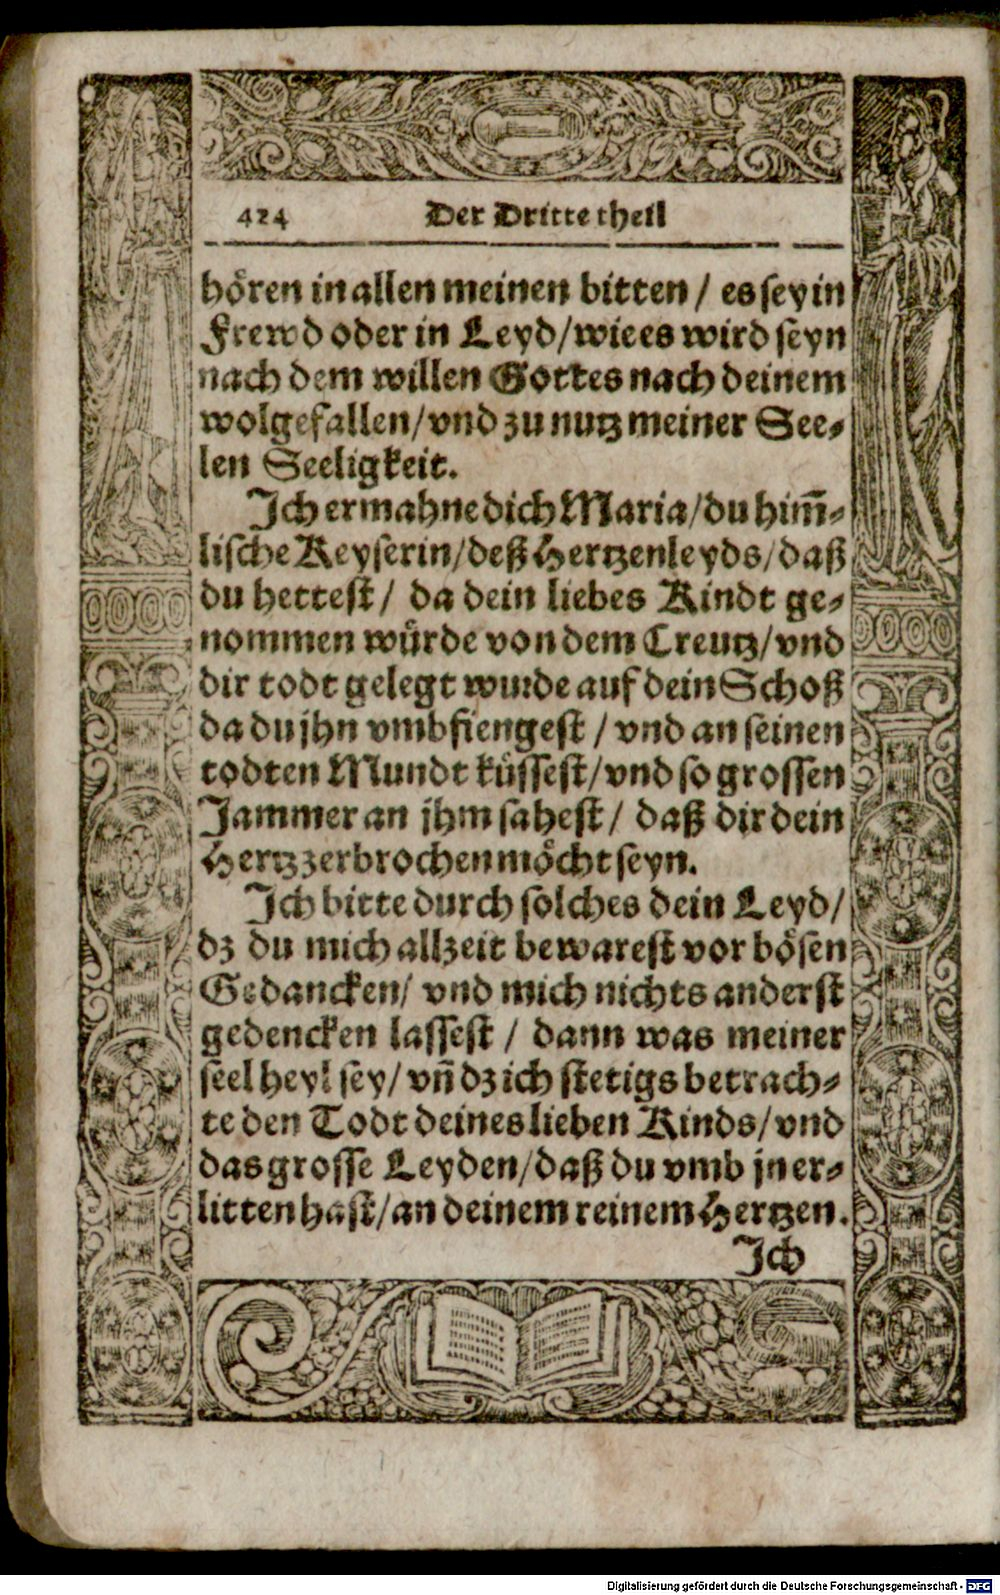 424 Der Dritte theil
hören in allen meinen bitten / es sey in
Frewd oder in Leyd / wie es wird seyn
nach dem willen Gottes nach deinem
wolgefallen / vnd zu nutz meiner See-
len Seeligkeit.
Ich ermahne dich Maria / du him̅-
lische Keyserin / deß Hertzenleyds / daß
du hettest / da dein liebes Kindt ge-
nommen würde von dem Creutz / vnd
dir todt gelegt wurde auf dein Schoß
da du jhn vmbfiengest / vnd an seinen
todten Mundt küssest / vnd so grossen
Jammer an jhm sahest / daß dir dein
Hertz zerbrochen möcht seyn.
Ich bitte durch solches dein Leyd /
dz du mich allzeit bewarest vor bösen
Gedancken / vnd mich nichts anderst
gedencken lassest / dann was meiner
seel heyl sey / vn̅ dz ich stetigs betrach-
te den Todt deines lieben Kinds / vnd
das grosse Leyden / daß du vmb jn er-
litten hast / an deinem reinem Hertzen.
Ich
Digitalisierung gefördert durch die Deutsche Forschungsgemeinschaft - DFG